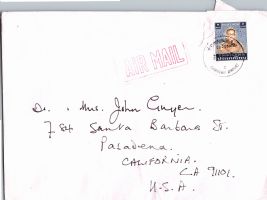 AIR MAIL
Dr. & Mrs. John
784 Santa Barbara St.
Pasadena.
CALIFORNIA.
CA 91101.
U.S.A.